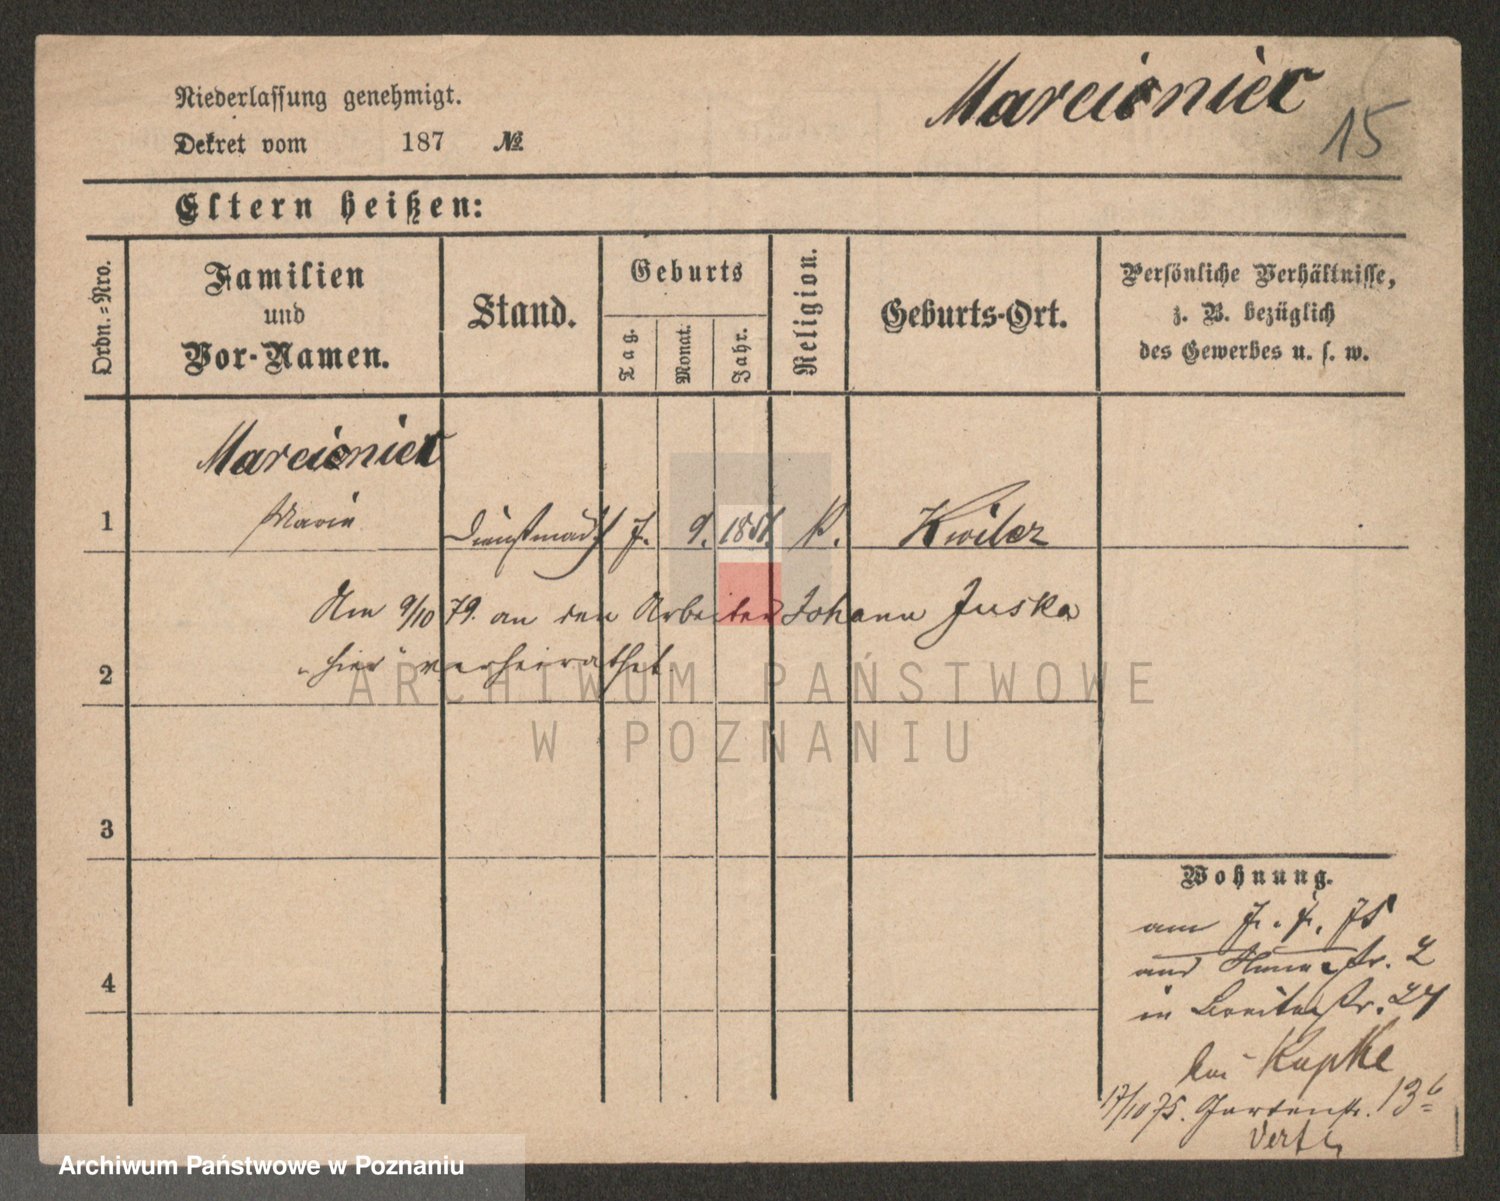 Niederlassung genehmigt.
Dekret vom 187 №
Marcioniec
15
Eltern heißen:
Ordn.-Nro.
Familien
und
Vor-Namen.
Stand.
Geburts
Tag.
Monat.
Jahr.
Religion.
Geburts-Ort.
Persönliche Verhältnisse,
z. B. bezüglich
des Gewerbes u. s. w.
Marcioniec
1 Marie Dienstmäd. 7. 9. 1851. K. Kwilcz
Am 9/10 79. an den Arbeiter Johann Juska
2 "hier" verheirathet
ARCHIWUM PAŃSTWOWE
W POZNANIU
3
Wohnung.
am 7. 7. 75
aus
2
4
in Breitestr. 27
bei Kupke
17/10 75. Gartenstr. 13b
Archiwum Państwowe w Poznaniu